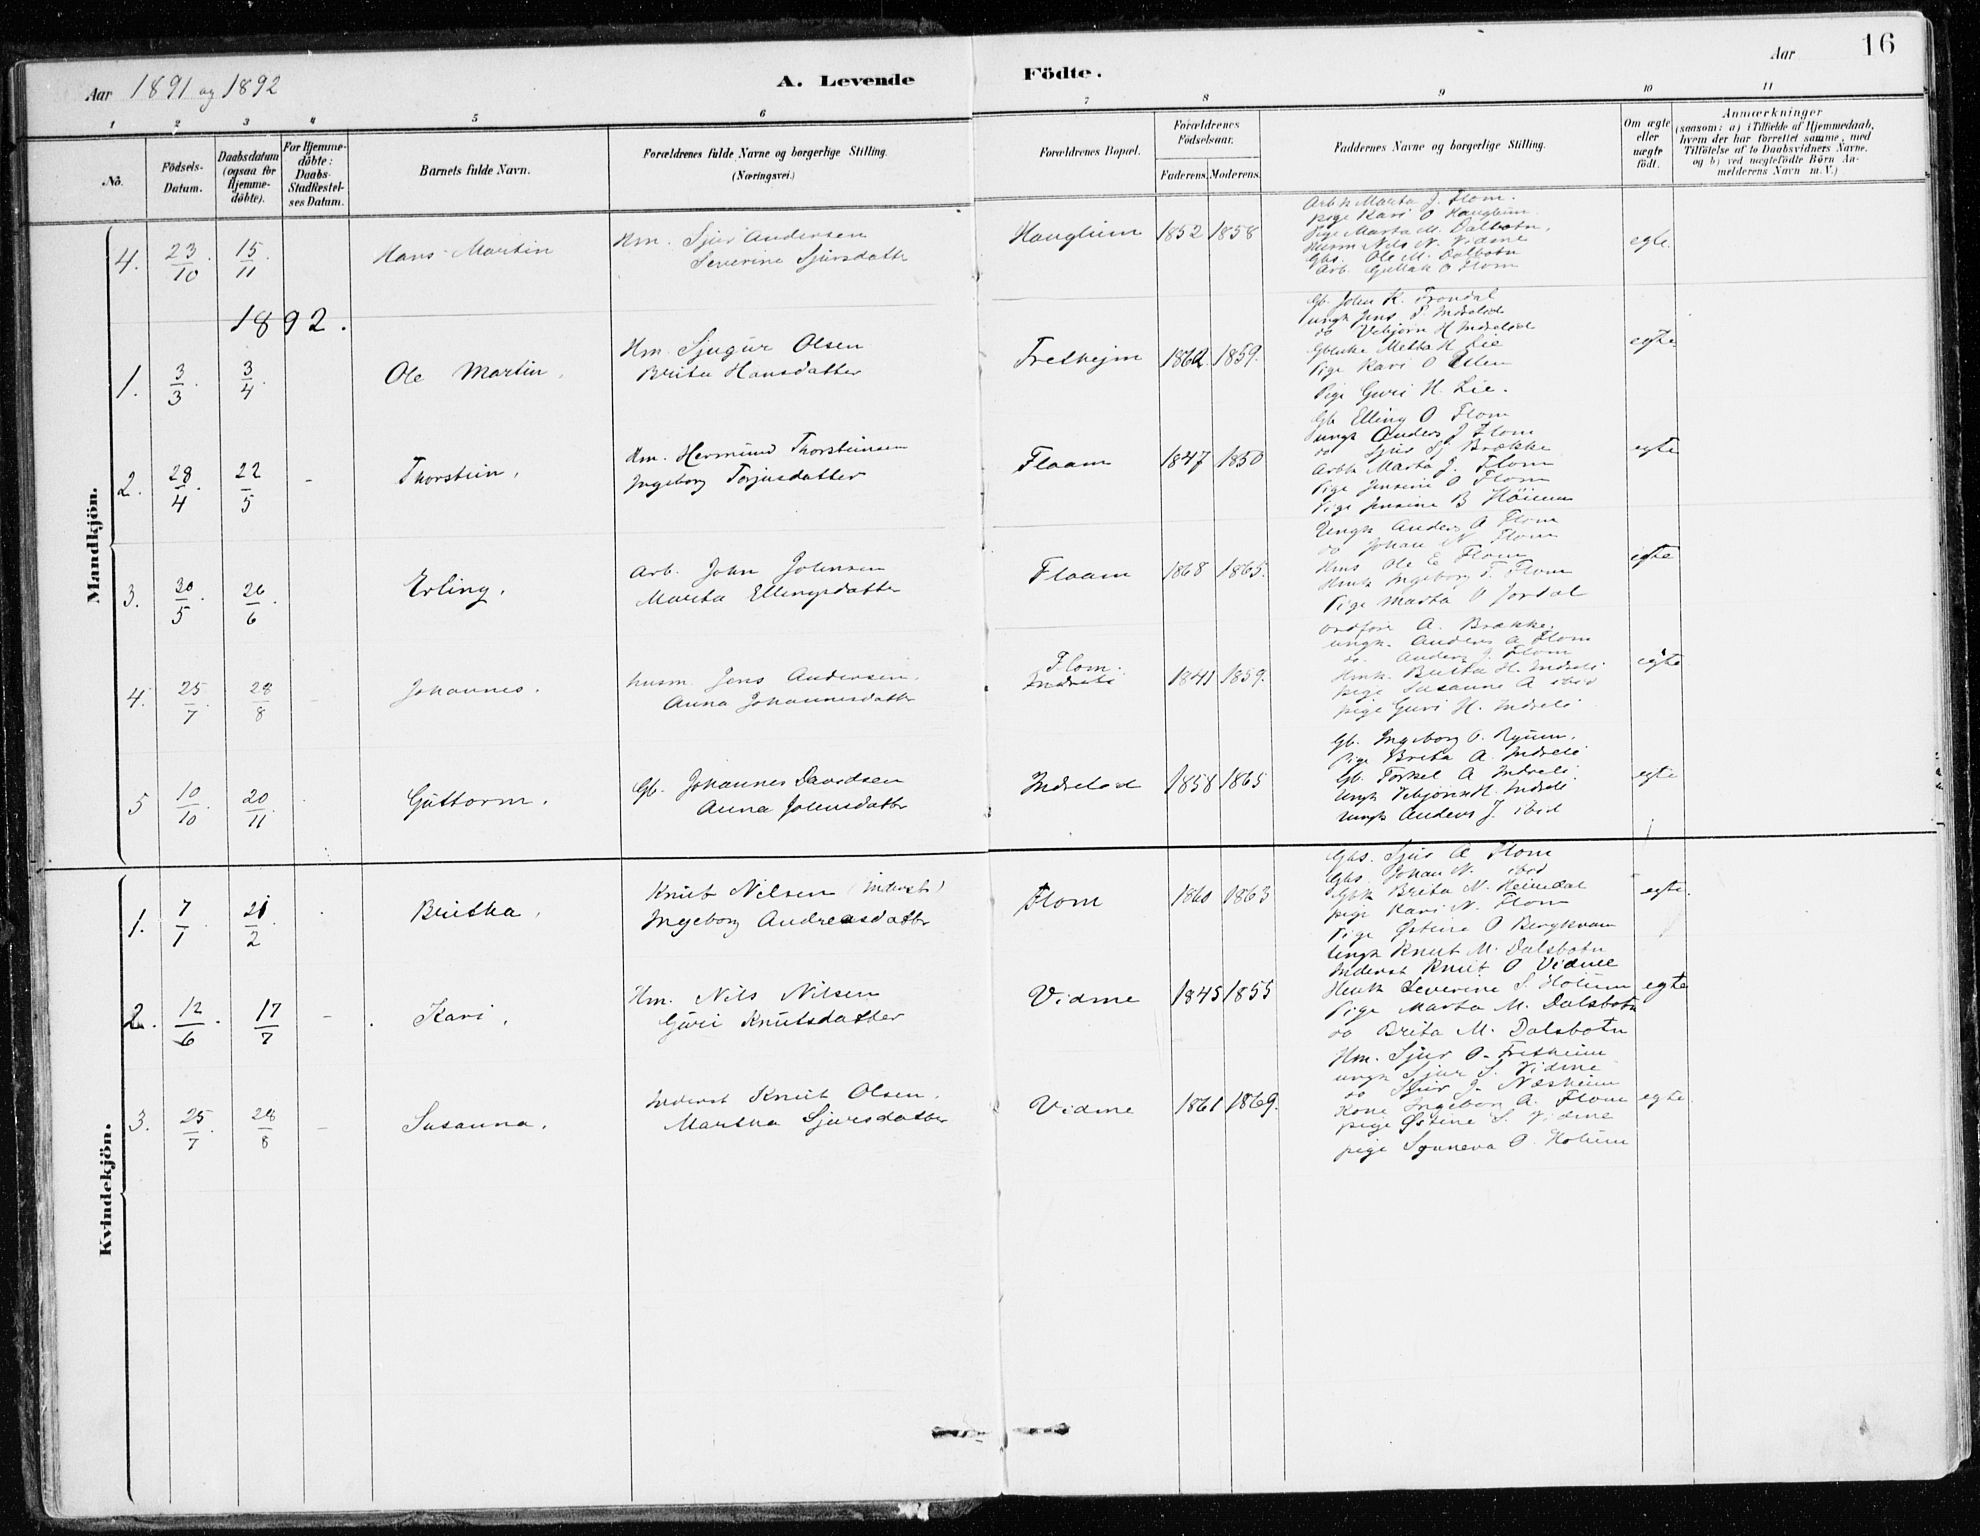 16
Aar 1891 og 1892
A. Levende
Födte.
Aar
1 2 3 4 5 6 7 8 9 10 11
No.
Födsels-
Datum.
Daabsdatum
(ogsaa for
Hjemme-
döbte).
For Hjemme-
döbte:
Daabs-
Stadfæstel-
ses Datum.
Barnets fulde Navn.
Forældrenes fulde Navne og borgerlige Stilling.
(Næringsvei.)
Forældrenes Bopæl.
Forældrenes
Födselsaar.
Faderens. Moderens.
Faddernes Navne og borgerlige Stilling.
Om ægte
eller
uægte
födt.
Anmærkninger
(saasom: a) i Tilfælde af Hjemmedaab,
hvem der har forrettet samme, med
Tilföielse af to Daabsvidners Navne,
og b) ved uægtefödte Börn An-
melderens Navn m. V.)
Mandkjön.
4. 23/10 15/11 Hans Martin
Hm. Sjur Andersen
Severine Sjursdattr
Hauglum 1852 1858
Arbk Marta J. Flom.
pige Kari O Hauglum
Pige Marta M. Dalbotn.
Husm Nils N. Vidme
Gbs. Ole M. Dalbotn
Arb. Gullak O Flom
egte.
1892.
1. 3/3. 3/4. Ole Martin.
Hm. Sjugur Olsen
Brita Hansdatter
Frethejm 1862 1859.
Gb. John K. Frondal
ungk Jens
do Vebjørn H Indrelid
Metta H Lie
Pige Kari O
Pige Guri H. Lie.
egte.
2. 28/4. 22/5 - Thorstein.
Hm. Hermund Thorsteinsen
Ingeborg Torjusdatter
Flaam 1847 1850
Gb Elling O Flom
ungk Anders J Flom
do Sjur Sj Brække
Arbk Marta J. Flom
Pige Jensine O Flom
Pige Jensine B Höium
egte
3. 30/5. 26/6. Erling.
Arb. John Johnsen
Marita Ellingsdatter
Flaam 1868 1865.
Ungk Anders A Flom
do Johan N Flom
Hms Ole E Flom
Hmk Ingeborg T. Flom
Pige Marta O Jordal
egte
4. 25/7 28/8 - Johannes.
husm. Jens Andersen.
Anna Johannesdattr
Flom.
Indreli
1841 1859.
ordfør A. Brække.
ungk. Anders A Flom
do. Anders J. Flom
Hmk. Britta H. Indreli
pige Susanne A ibid
pige Guri H. Indreli
egte
5 10/10 20/11 Guttorm.
Gb. Johannes Davidsen
Anna Johnsdattr
Indrelid 1858 1865
Gb. Ingeborg O. Ryum.
Pige Brita A. Indreli
Gb. Torkel A Indreli.
Ungk Vebjørn H. Indreli
Ungk Anders J. ibid
egte
Kvindekjön.
1. 7/1. 21/2. Britha.
Knut Nilsen (Inderst)
Ingeborg Andreasdattr
Flom 1860 1863
Gbs. Sjur A Flom
Gbs Johan N. ibid
Gbk Brita N. Heimdal
pige Kari N. Flom
Pige Østine O Bergkvam
Ungk Knut M. Dalsbotn
egte.
2. 12/6. 17/7 - Kari.
Hm. Nils Nilsen
Guri Knutsdatter
Vidme 1845 1855
Inderst Knut O Vidme
Severine S. Holum
Pige Marta M. Dalsbotn
do Brita M. Dalsbotn
egte
3. 25/7 28/8 - Susanna.
Inderst Knut Olsen.
Martha Sjursdattr
Vidme 1861 1869.
Hm. Sjur O. Fretheim
ungk Sjur S. Vidme
do Sjur J. Næsheim
Kone Ingeborg A. Flom
pige Østine S. Vidme
pige Synneva O. Holum
egte.